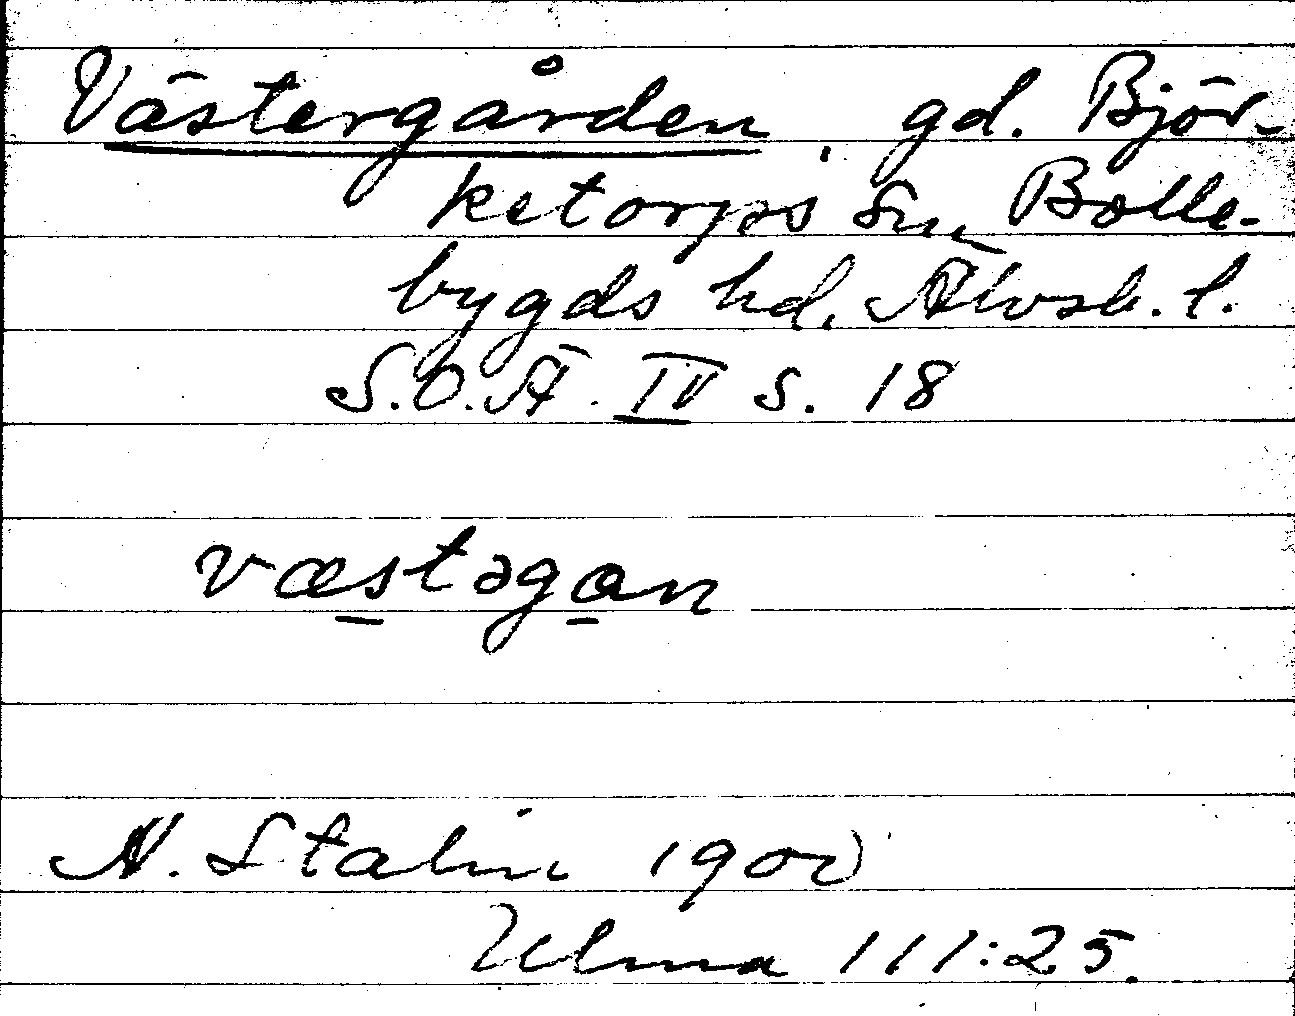 Västergården, gd. Björ-
ketorps sn Bolle-
bygds hd. Älvsb. l.
S.O.Ä. IV s. 18
væstəgan
N. Stalin 1900
Ulma 111:25.